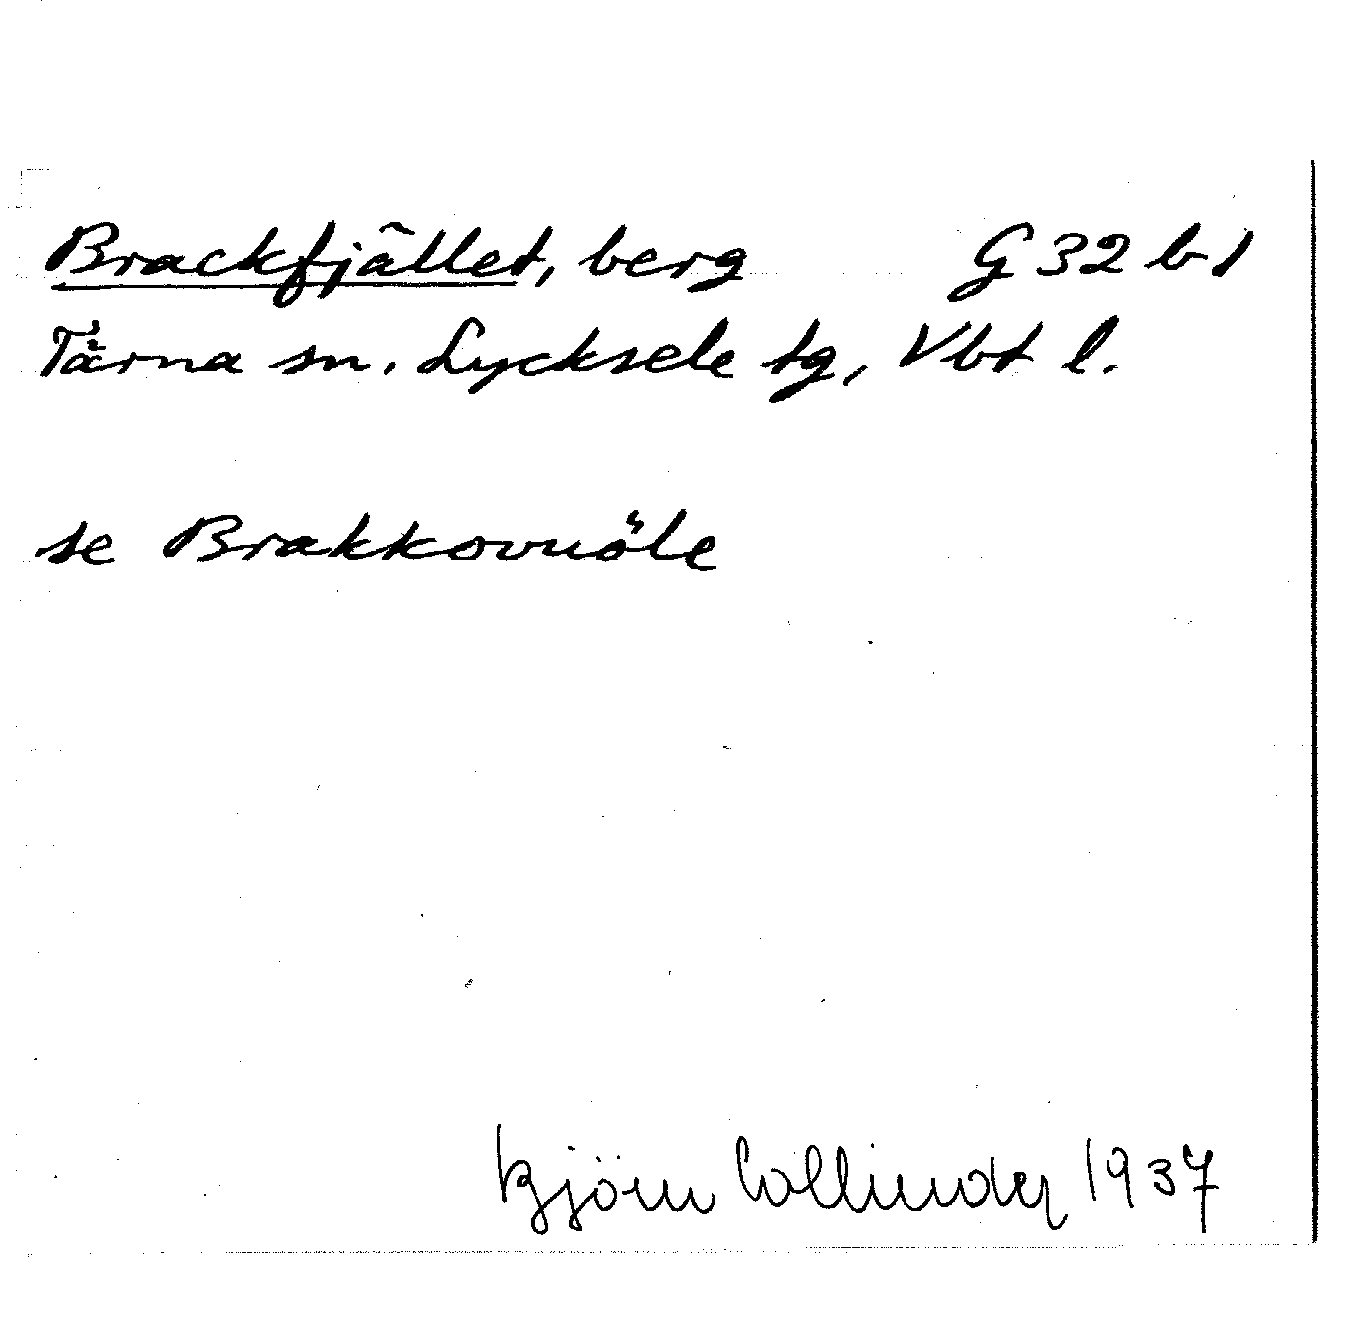 Brackfjället, berg G 32 b 1
Tärna sn. Lycksele tg, Vbt l.
se Brakkovuöle
Björn Collinder 1937